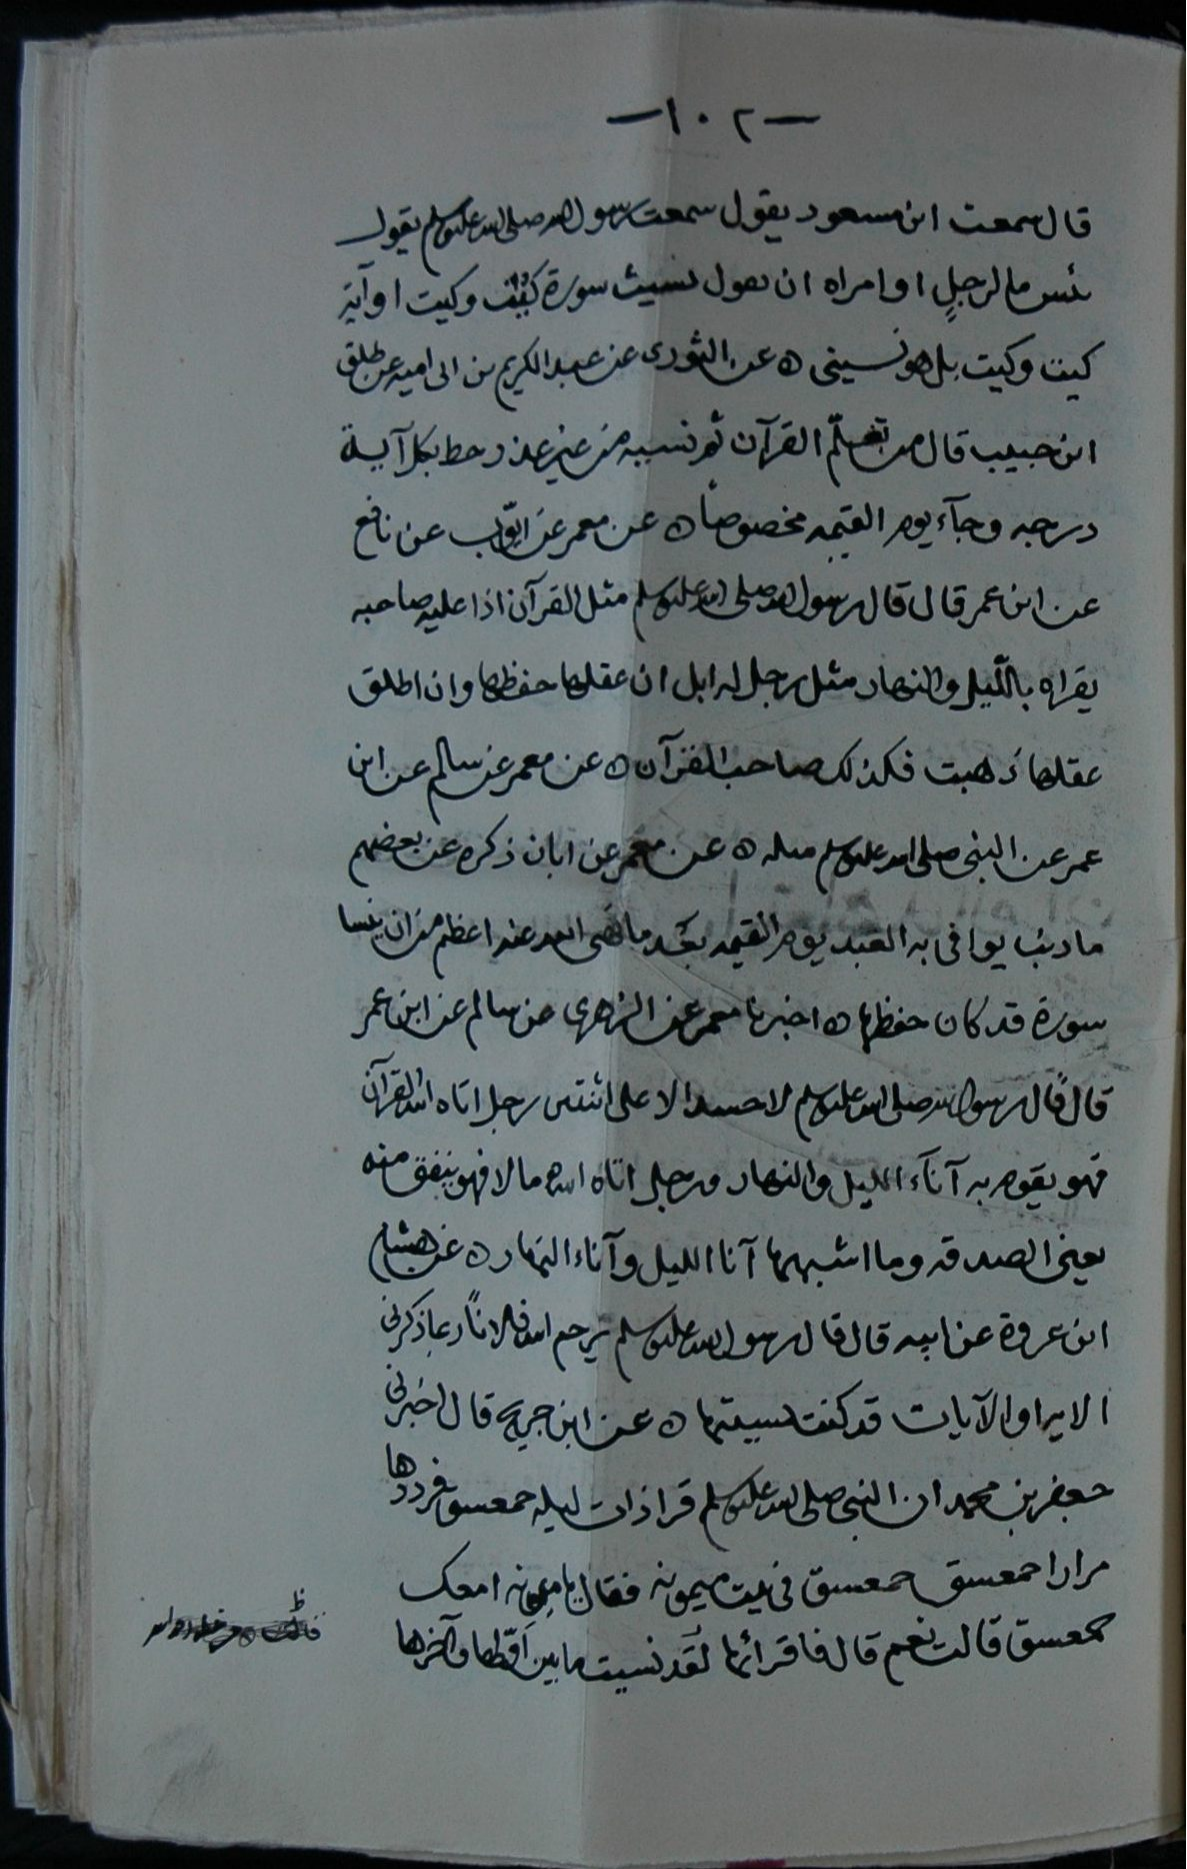 —١٠٢—
قال سمعت ابن مسعود يقول سمعت رسول الله صلى الله عليه وسلم يقول
بئس ما لرجلٍ او امراه ان يقول نسيت سورة كيت وكيت او آية
كيت وكيت بل هو نسيني ه عن الثورى عن عبد الكريم بن ابى اميه عن طلق
ابن حبيب قال من تعلّم القرآن ثم نسيه من غير عذر حط بكل آية
درجه وجآء يوم القيمه مخصوصاً ه عن معمر عن ايّوب عن نافع
عن ابن عمر قال قال رسول الله صلى الله عليه وسلم مثل القرآن اذا عليه صاحبه
يقراه بالّليل والنهار مثل رجل له ابل ان عقلها حفظها وان اطلق
عقلها ذهبت فكذلك صاحب القرآن ه عن معمر عن سالم عن ابن
عمر عن النبى صلى الله عليه وسلم مثله ه عن معمر عن ابان ذكره عن بعضهم
ما ذنب يوافى به العبد يوم القيمه بعد ما نهى الله عنه اعظم من ان ينسا
سورة قد كان حفظها ه اخبرنا معمر عن الزهرى عن سالم عن ابن عمر
قال قال رسول الله صلى الله عليه وسلم لا حسد الا على اثنتين رجل اتاه الله القرآن
فهو يقوم به آنآء الليل والنهار ورجل اتاه الله مالا فهو ينفق منه
يعنى الصدقه وما اشبهها آنا الليل وآناء النهار ه عن هشام
ابن عروة عن ابيه قال قال رسول الله صلى الله عليه وسلم يرحم الله فلاناً ربما ذكرنى
الايه او الآيات قد كنت نسيتها ه عن ابن جريج قال اخبرنى
جعفر بن محمد ان النبى صلى الله عليه وسلم قرا ذات ليله حمعسق فرددها
مرارا حمعسق حمعسق فى بيت ميمونه فقال يا ميمونه امعك
حمعسق قالت نعم قال فاقرائها لقد نسيت ما بين اوّلها وآخرها